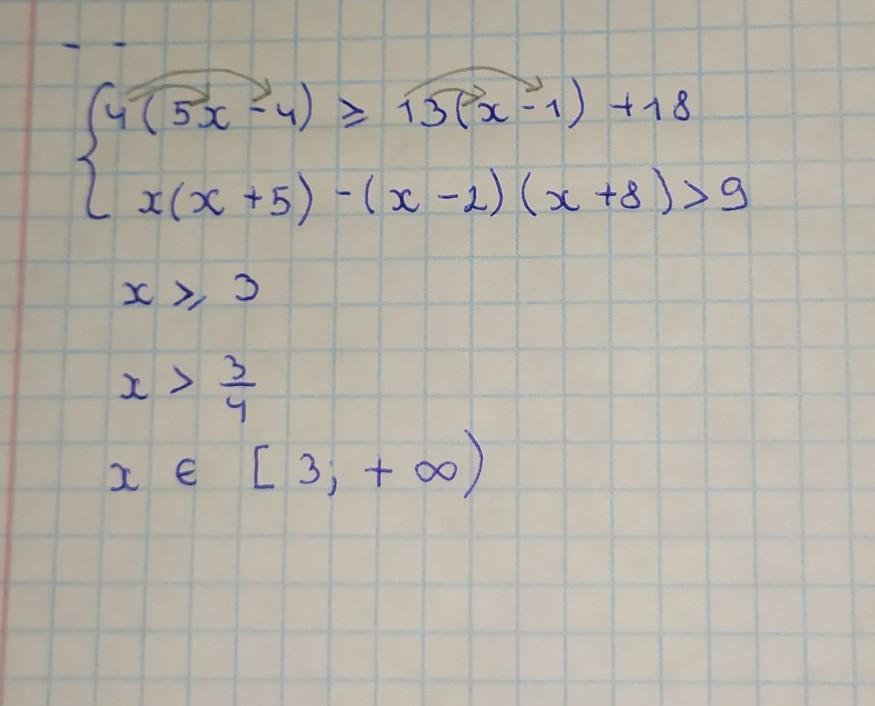 { 4(5x - 4) ≥ 13(x - 1) + 18
x(x + 5) - (x - 2)(x + 8) > 9
x ≥ 3
x > 3/4
x ∈ [3; + ∞)